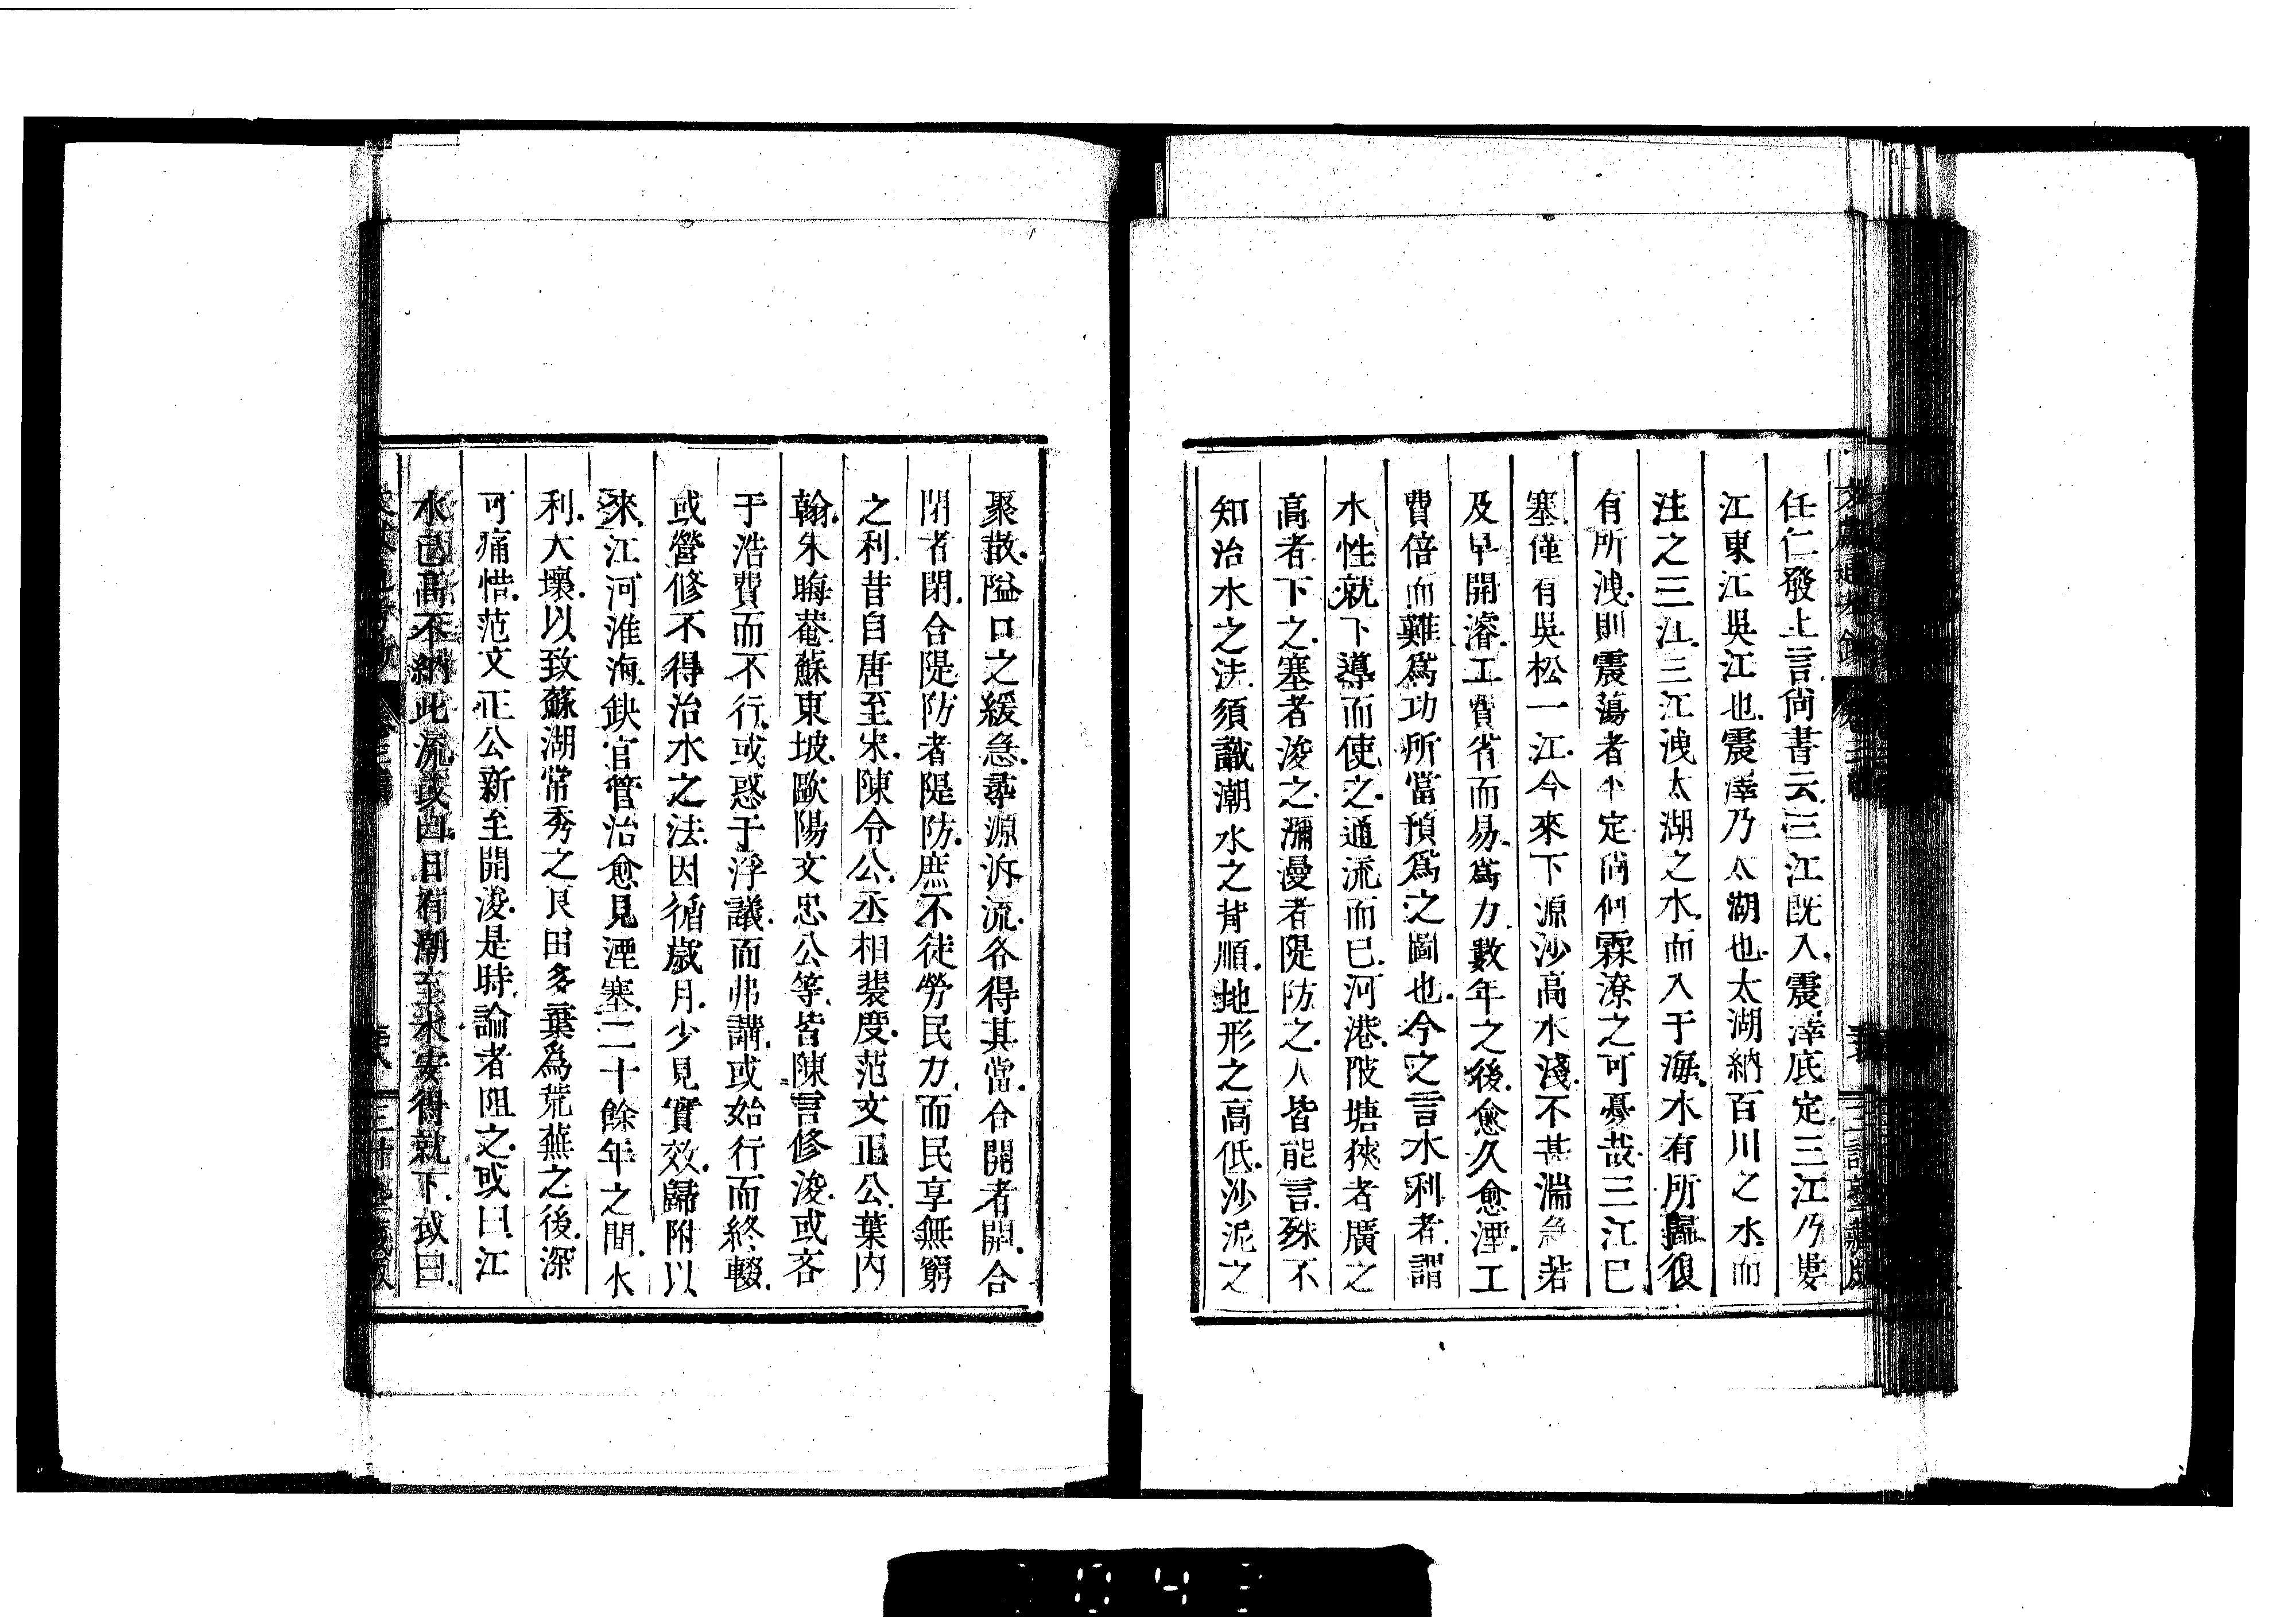 任仁發上言尚書云三江既入震澤底定三江乃婁
江東江吳江也震澤乃太湖也太湖納百川之水而
注之三江三江洩太湖之水而入于海水有所歸復
有所洩則震蕩者平定尚何霖潦之可憂哉三江已
塞僅有吳松一江今來下源沙高水淺不甚湍急若
及早開濬工費省而易為力數年之後愈久愈湮工
費倍而難爲功所當預爲之圖也今之言水利者謂
水性就下導而使之通流而已河港陂塘狹者廣之
高者下之塞者浚之瀰漫者隄防之人皆能言殊不
知治水之法須識潮水之背順地形之高低沙泥之
聚散隘口之緩急尋源泝流各得其當合開者開合
閉者閉合隄防者隄防庶不徒勞民力而民享無窮
之利昔自唐至宋陳令公丞相裴度范文正公葉內
翰朱晦菴蘇東坡歐陽文忠公等皆陳言修浚或吝
于浩費而不行或惑于浮議而弗講或始行而終輟
或營修不得治水之法因循歲月少見實效歸附以
來江河淮海缺官管治愈見湮塞二十餘年之間水
利大壞以致蘇湖常秀之良田多棄爲荒蕪之後深
可痛惜范文正公新至開浚是時論者阻之或曰江
水已高不納此流或曰日有潮至水安得就下或曰